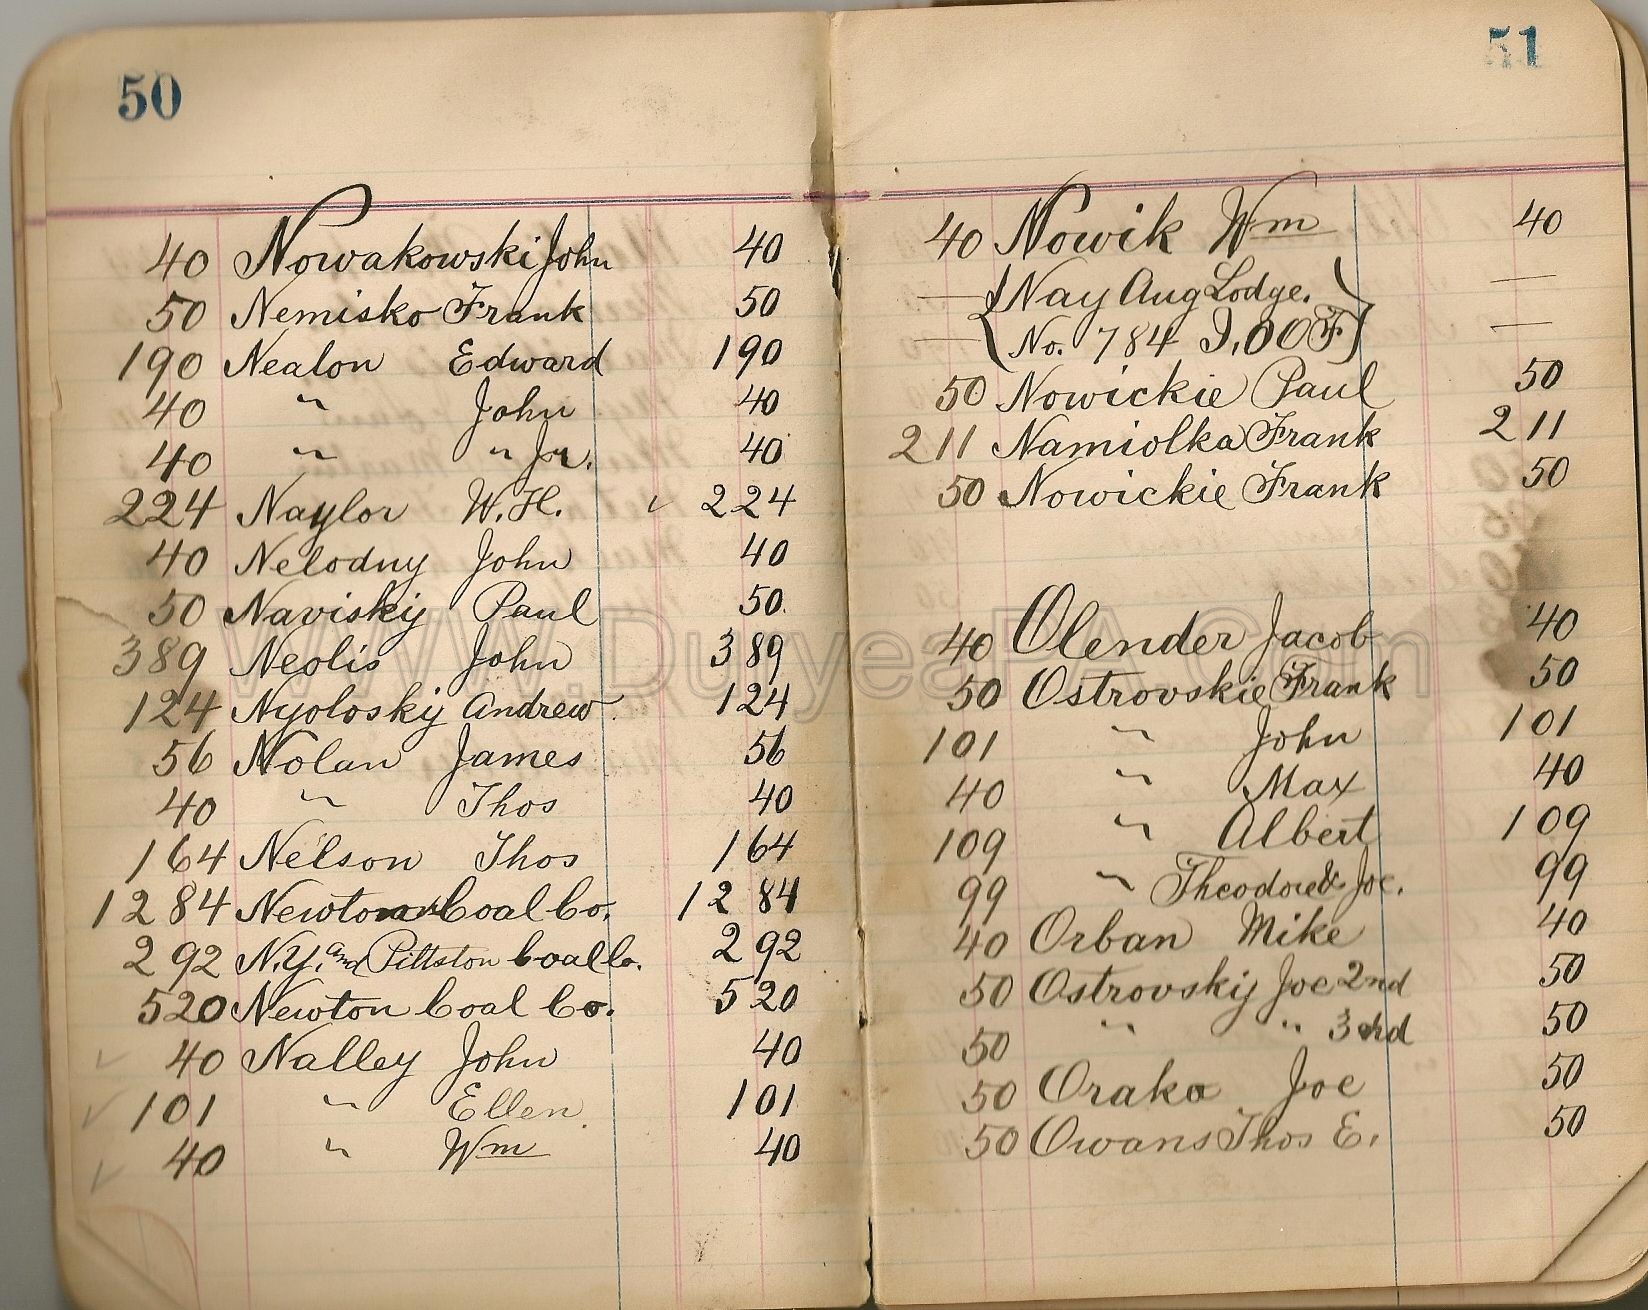 50
40 Nowakowski John 40
50 Nemisko Frank 50
190 Nealon Edward 190
40 " John 40
40 " " Jr. 40
224 Naylor W.H. ✓ 224
40 Nelodny John 40
50 Navisky Paul 50.
389 Neolis John 389
124 Nyolosky Andrew 124
56 Nolan James 56
40 " Thos 40
164 Nelson Thos 164
1284 Newton Coal Co. 1284
292 N.Y. and Pittston Coal Co. 292
520 Newton Coal Co. 520
✓ 40 Nalley John 40
✓ 101 " Ellen 101
✓ 40 " Wm 40
51
40 Nowik Wm 40
— { Nay Aug Lodge. } —
— { No. 784 I.OOF } —
50 Nowickie Paul 50
211 Namiolka Frank 211
50 Nowickie Frank 50
40 Olender Jacob 40
50 Ostrovskie Frank 50
101 " John 101
40 " Max 40
109 " Albert 109
99 " Theodore & Joe. 99
40 Orban Mike 40
50 Ostrovsky Joe 2nd 50
50 " " 3rd 50
50 Orako Joe 50
50 Owans Thos E. 50
WWW.DuryeaPA.Com